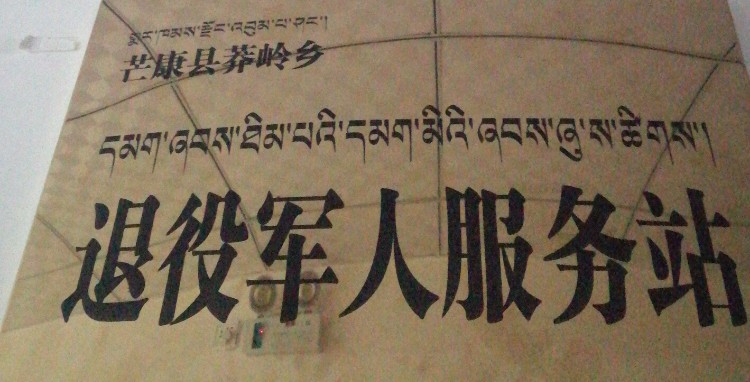 སྨར་ཁམས་རྫོང་འབུམ་པ་ཤང་།
芒康县莽岭乡
དམག་ཞབས་ཐིམ་པའི་དམག་མིའི་ཞབས་ཞུ་ས་ཚིགས།
退役军人服务站